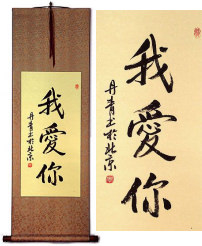 我愛你
丹青书於北京
我愛你
丹青书於北京